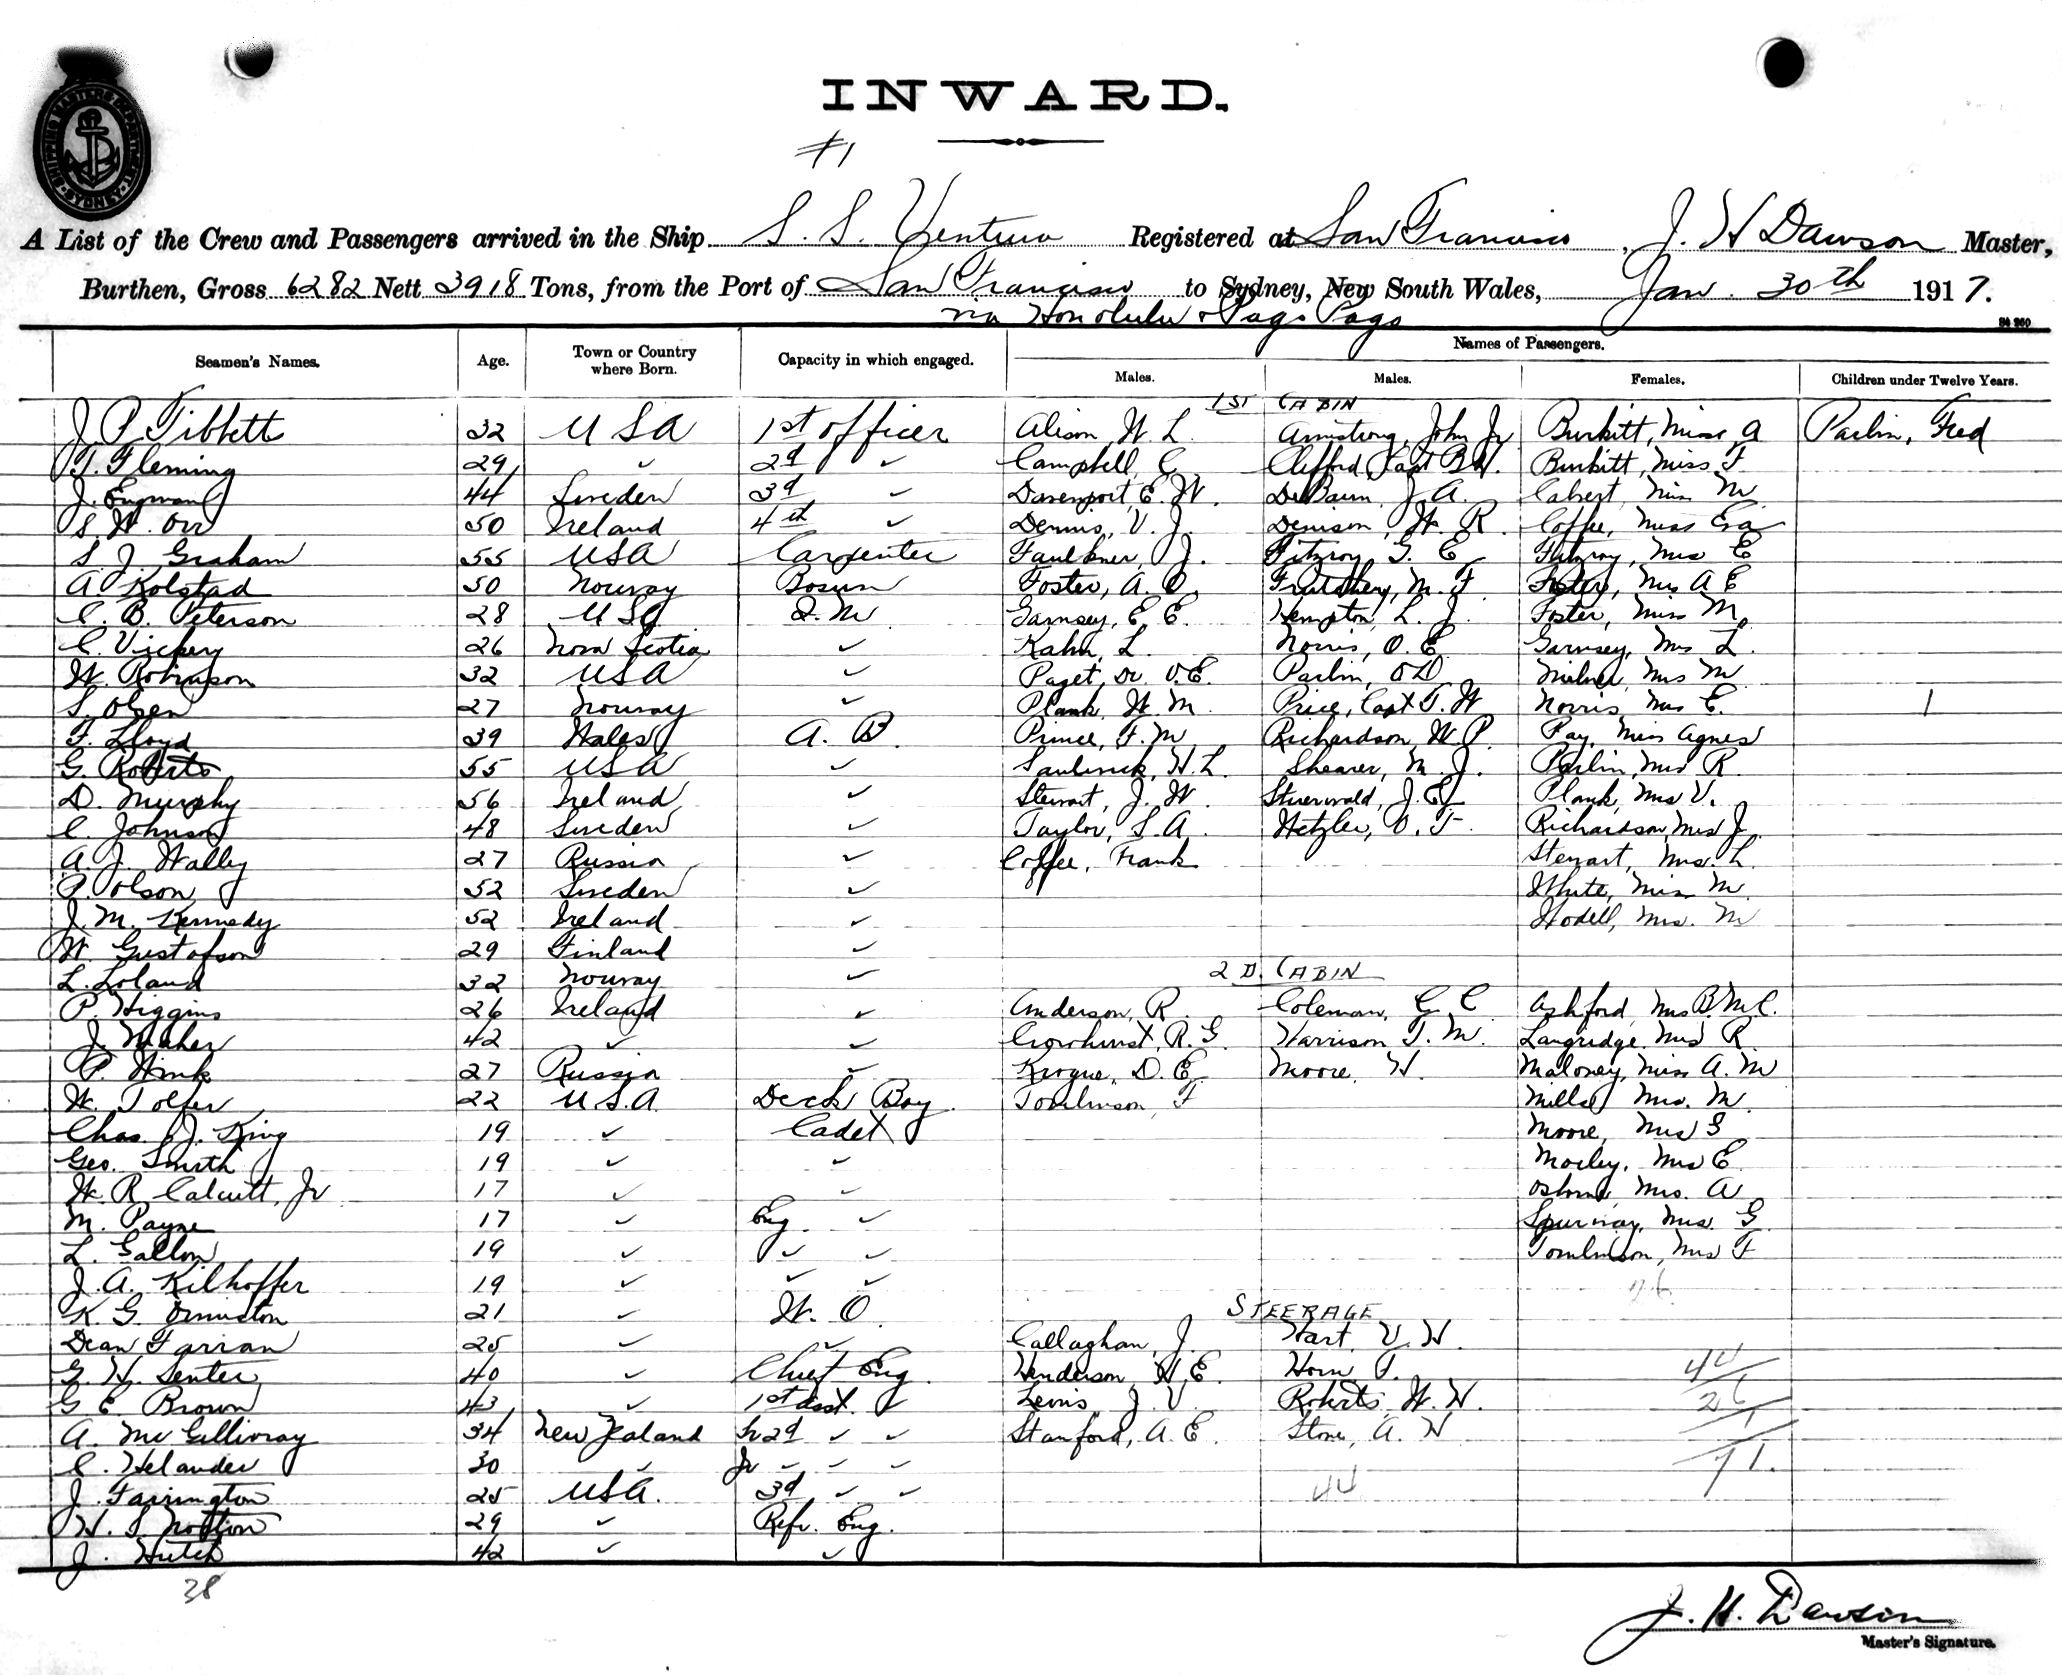 INWARD.
#1
A List of the Crew and Passengers arrived in the Ship S. S. Ventura Registered at San Francisco, J. H Dawson Master,
Burthen, Gross 6282 Nett 3918 Tons, from the Port of San Francisco to Sydney, New South Wales, Jan. 30th 1917.
via Honolulu & Pago Pago
Names of Passengers.
Seamen's Names. Age. Town or Country where Born. Capacity in which engaged. Males. Males. Females. Children under Twelve Years.
1ST CABIN
J P Tibbett 32 USA 1st officer Alison, W. L. Armstrong, John Jr Burkitt, Miss A Parlin, Fred
T. Fleming 29 ✓ 2d ✓ Campbell, C Clifford, Capt B W. Burkitt, Miss F
J. Engman 44 Sweden 3d ✓ Davenport, E. W. DeBaun, J. A. Calvert, Miss M
S. W. Orr 50 Ireland 4th ✓ Dennis, V. J. Denison, W. R. Coffee, Miss Eva
S. J. Graham 55 USA Carpenter Faulkner, J. Fitzroy G. E. Fitzroy, Mrs E
A. Kolstad 50 Norway Bosun Foster, A. M. F. Mrs A E
C. B. Peterson 28 USA Q.M Garnsey, E E. Hempton, L. J. Foster, Miss M.
C. Vickery 26 Nova Scotia ✓ Kahn, L. Norris, O. E. Garnsey, Mrs L.
W. Robinson 32 USA ✓ Paget, Dr. O.E. Parlin, O D Milner, Mrs M
S. Olsen 27 Norway ✓ Plank, W. M. Price, Capt T. W Norris, Mrs E. 1
F. Lloyd 39 Wales A. B. Prince, F. M Richardson, W. P. Pay, Miss Agnes
G. Roberts 55 USA ✓ H. L. Shearer, M. J. Parlin, Mrs R.
D. Murphy 56 Ireland ✓ Stewart, J. W. Stuerwald, J. E. Plank, Mrs V.
C. Johnson 48 Sweden ✓ Taylor, S. A. Hetzler, O. F. Richardson, Mrs J.
A. J. Wally 27 Russia ✓ Coffee, Frank Stewart, Mrs. L.
P. Olson 52 Sweden ✓ White, Miss M.
J. M. Kennedy 52 Ireland ✓ Hodell, Mrs. M
W. Gustafson 29 Finland ✓
L. Loland 32 Norway ✓
2 D. CABIN
P. Higgins 26 Ireland ✓ Anderson, R. Coleman, G. C. Ashford, Mrs B. M. C.
J. Maher 42 ✓ ✓ Crowhurst, R. G. Harrison T. M. Langridge, Mrs R.
P. Wink 27 Russia ✓ Krogue, D. E. Moore, H. Maloney, Miss A. M
W. Tolfer 22 U.S.A. Deck Boy. Tomlinson, F Mills, Mrs. M.
Chas. W. King 19 ✓ Cadet Moore, Mrs S
Geo. Smith 19 ✓ ✓ Morley, Mrs E
W. R. Calcutt, Jr 17 ✓ ✓ Osborne, Mrs. A
M. Payne 17 ✓ Eng. ✓ Spurway, Mrs. G.
L. Gallon 19 ✓ ✓ ✓ Tomlinson, Mrs F
J. A. Kilhoffer 19 ✓ ✓ ✓ 26
K. G. Ormiston 21 ✓ W. O.
STEERAGE
Dean Farran 25 ✓ ✓ Callaghan, J. Hart, V. H.
G. H. Senter 40 ✓ Chief Eng. Henderson, H. E. Horn, P. 44
G E Brown 43 ✓ 1st Asst. ✓ Lewis, J. V. Roberts, W. H. 26
A. McGillivray 34 New Zealand Sr 2d ✓ ✓ Stanford, A. E. Stone, A. H 1
C. Helander 30 ✓ Jr ✓ ✓ ✓ 71.
J. Farrington 25 USA. 3d ✓ ✓ 44
H. S. Notton 29 ✓ Refr. Eng.
J. Hutch 42 ✓ ✓
38
J. H. Dawson
Master's Signature.